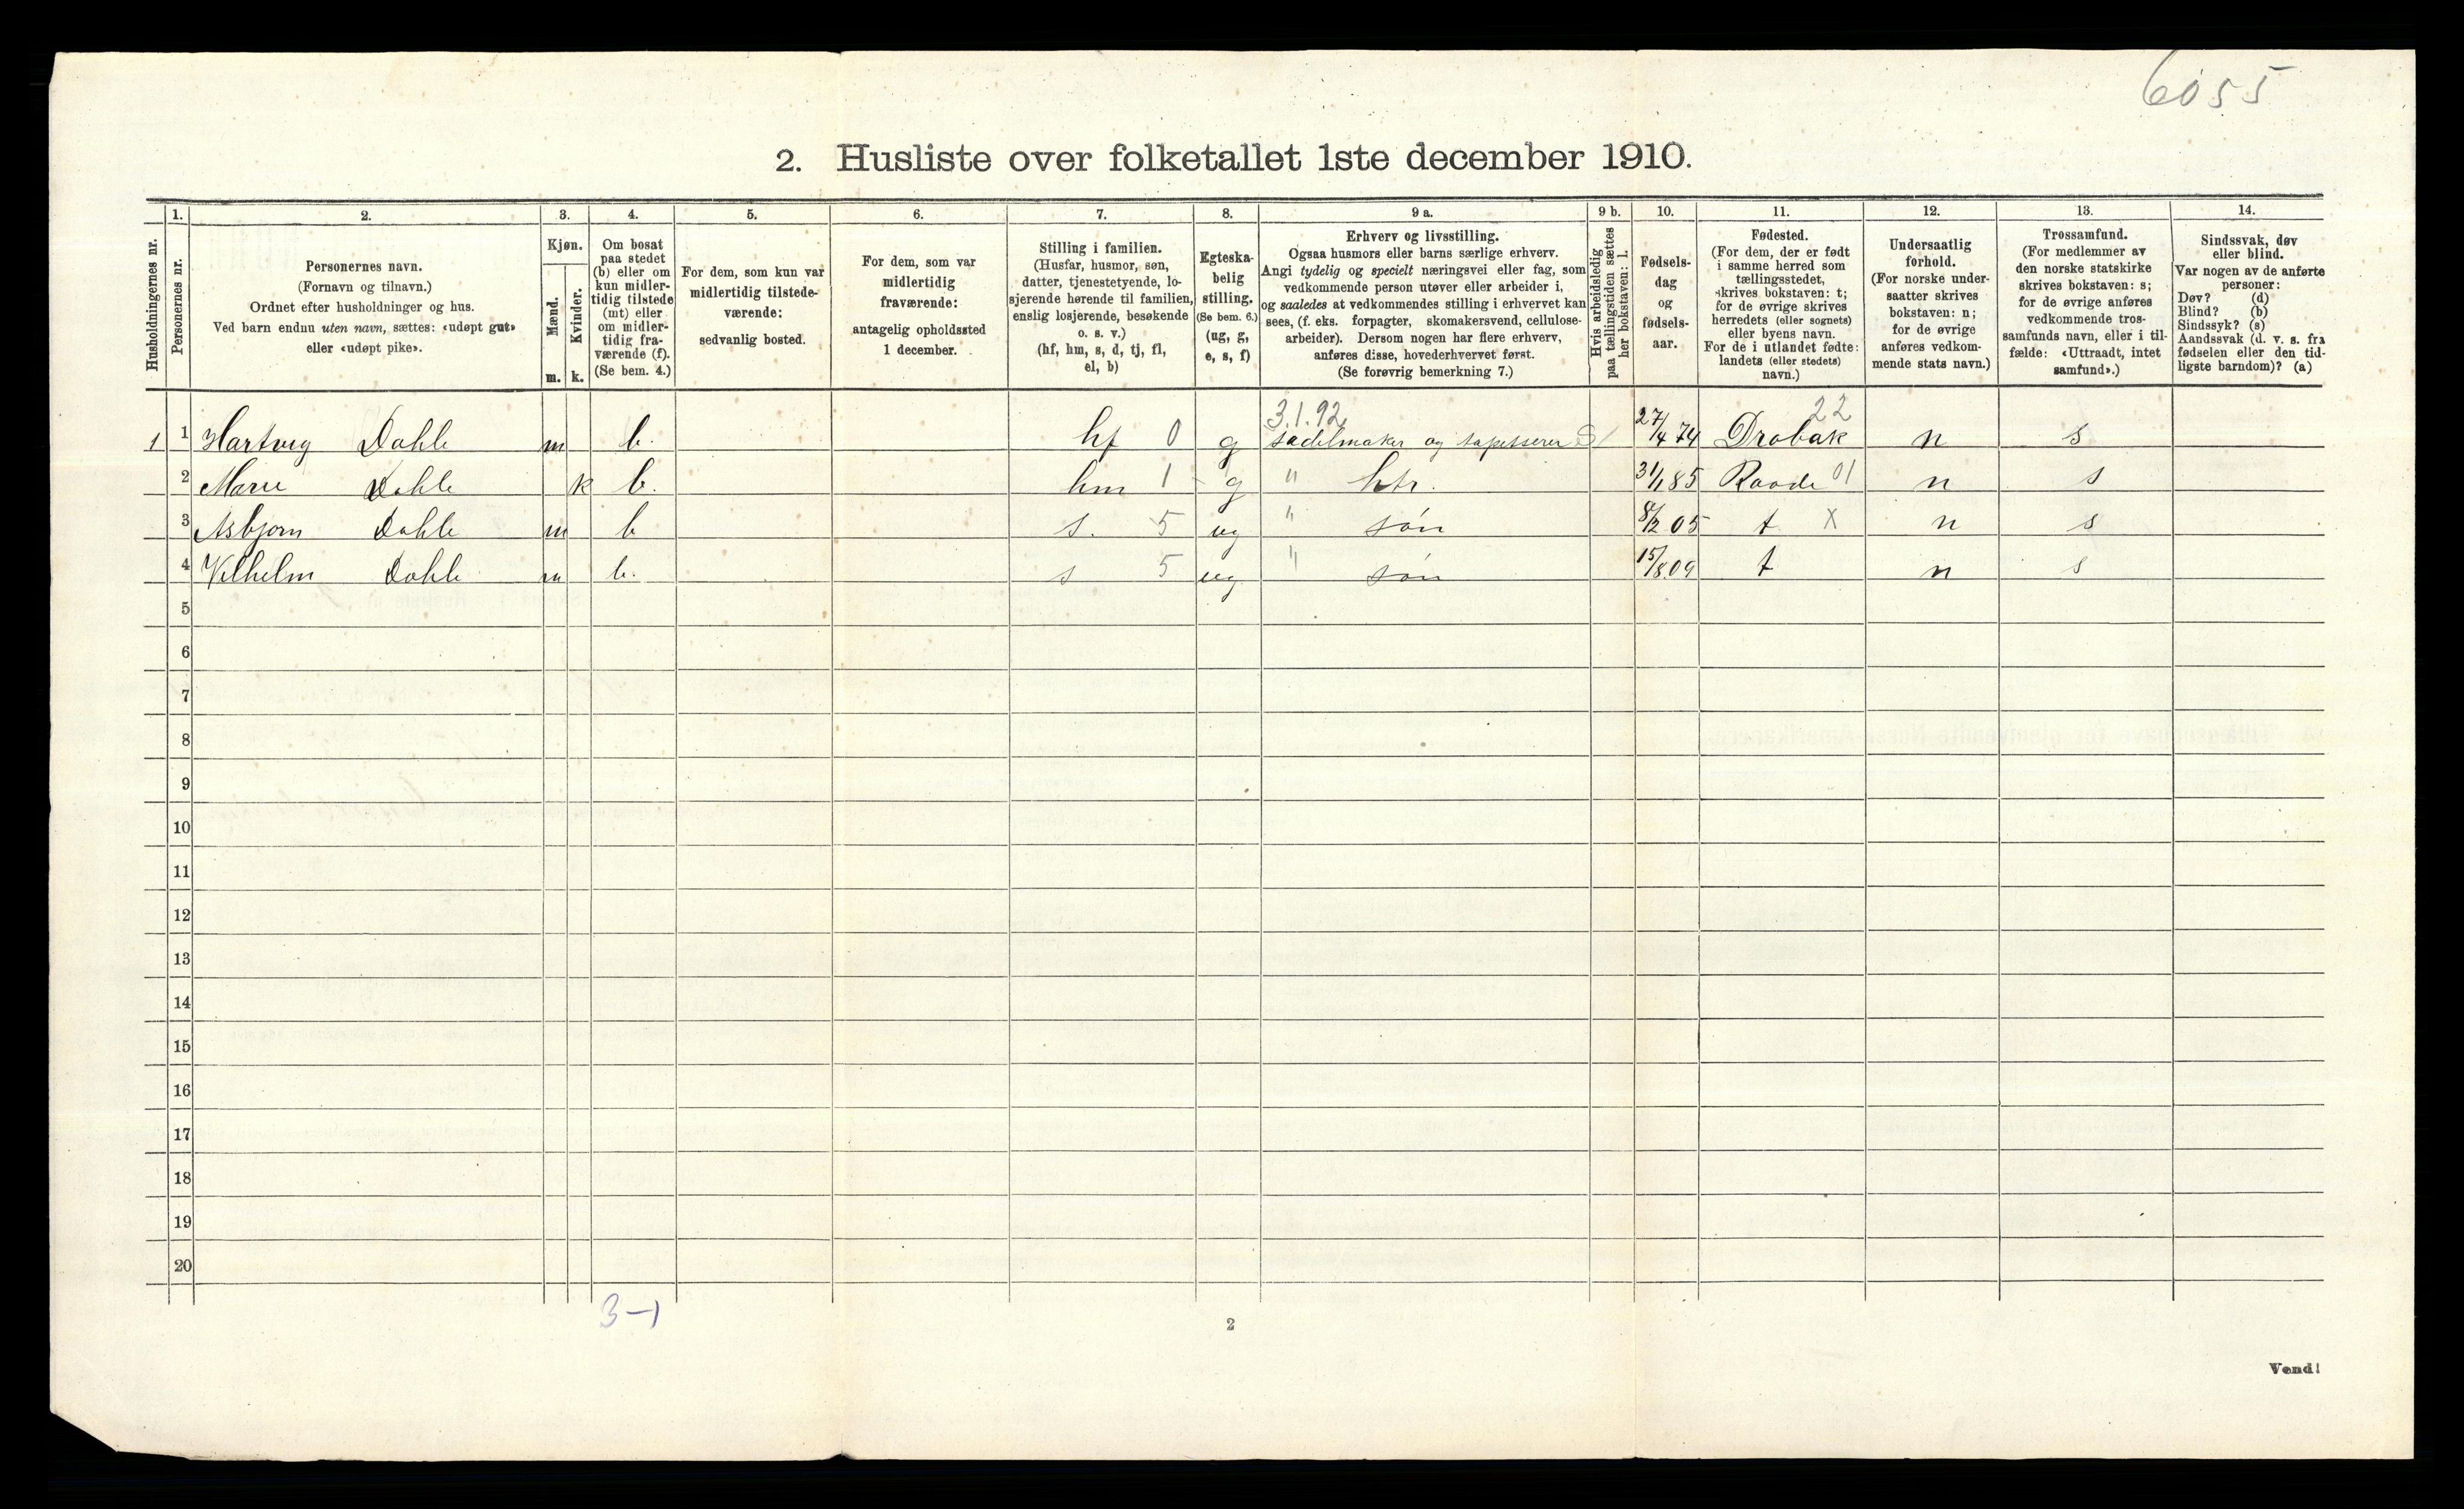 6055
2. Husliste over folketallet 1ste december 1910.
Husholdningernes nr.
1.
Personernes nr.
2.
Personernes navn.
(Fornavn og tilnavn.)
Ordnet efter husholdninger og hus.
Ved barn endnu uten navn, sættes: «udøpt gut»
eller «udøpt pike».
3.
Kjøn.
Mænd.
m.
Kvinder.
k.
4.
Om bosat
paa stedet
(b) eller om
kun midler-
tidig tilstede
(mt) eller
om midler-
tidig fra-
værende (f).
(Se bem. 4.)
5.
For dem, som kun var
midlertidig tilstede-
værende:
sedvanlig bosted.
6.
For dem, som var
midlertidig
fraværende:
antagelig opholdssted
1 december.
7.
Stilling i familien.
(Husfar, husmor, søn,
datter, tjenestetyende, lo-
sjerende hørende til familien,
enslig losjerende, besøkende
o. s. v.)
(hf, hm, s, d, tj, fl,
el, b)
8.
Egteska-
belig
stilling.
(Se bem. 6.)
(ug, g,
e, s, f)
9 a.
Erhverv og livsstilling.
Ogsaa husmors eller barns særlige erhverv.
Angi tydelig og specielt næringsvei eller fag, som
vedkommende person utøver eller arbeider i,
og saaledes at vedkommendes stilling i erhvervet kan
sees, (f. eks. forpagter, skomakersvend, cellulose-
arbeider). Dersom nogen har flere erhverv,
anføres disse, hovederhvervet først.
(Se forøvrig bemerkning 7.)
9 b.
Hvis arbeidsledig
paa tællingstiden sættes
her bokstaven: l.
10.
Fødsels-
dag
og
fødsels-
aar.
11.
Fødested.
(For dem, der er født
i samme herred som
tællingsstedet,
skrives bokstaven: t;
for de øvrige skrives
herredets (eller sognets)
eller byens navn.
For de i utlandet fødte:
landets (eller stedets)
navn.)
12.
Undersaatlig
forhold.
(For norske under-
saatter skrives
bokstaven: n;
for de øvrige
anføres vedkom-
mende stats navn.)
13.
Trossamfund.
(For medlemmer av
den norske statskirke
skrives bokstaven: s;
for de øvrige anføres
vedkommende tros-
samfunds navn, eller i til-
fælde: «Uttraadt, intet
samfund».)
14.
Sindssvak, døv
eller blind.
Var nogen av de anførte
personer:
Døv? (d)
Blind? (b)
Sindssyk? (s)
Aandssvak (d. v. s. fra
fødselen eller den tid-
ligste barndom)? (a)
3.1.92 22
1 1 Hartvig Dahle m b. hf 0 g sadelmaker og tapetserer 27/4 74 Drøbak n s
2 Marie Dahle k b. hm 1 g " htr. 31/1 85 Raade 01 n s
3 Asbjørn Dahle m b s. 5 ug " søn 8/2 05 t x n s
4 Vilhelm Dahle m b. s 5 ug " søn 15/8 09 t n s
5
6
7
8
9
10
11
12
13
14
15
16
17
18
19
20
3-1
2
Vend!